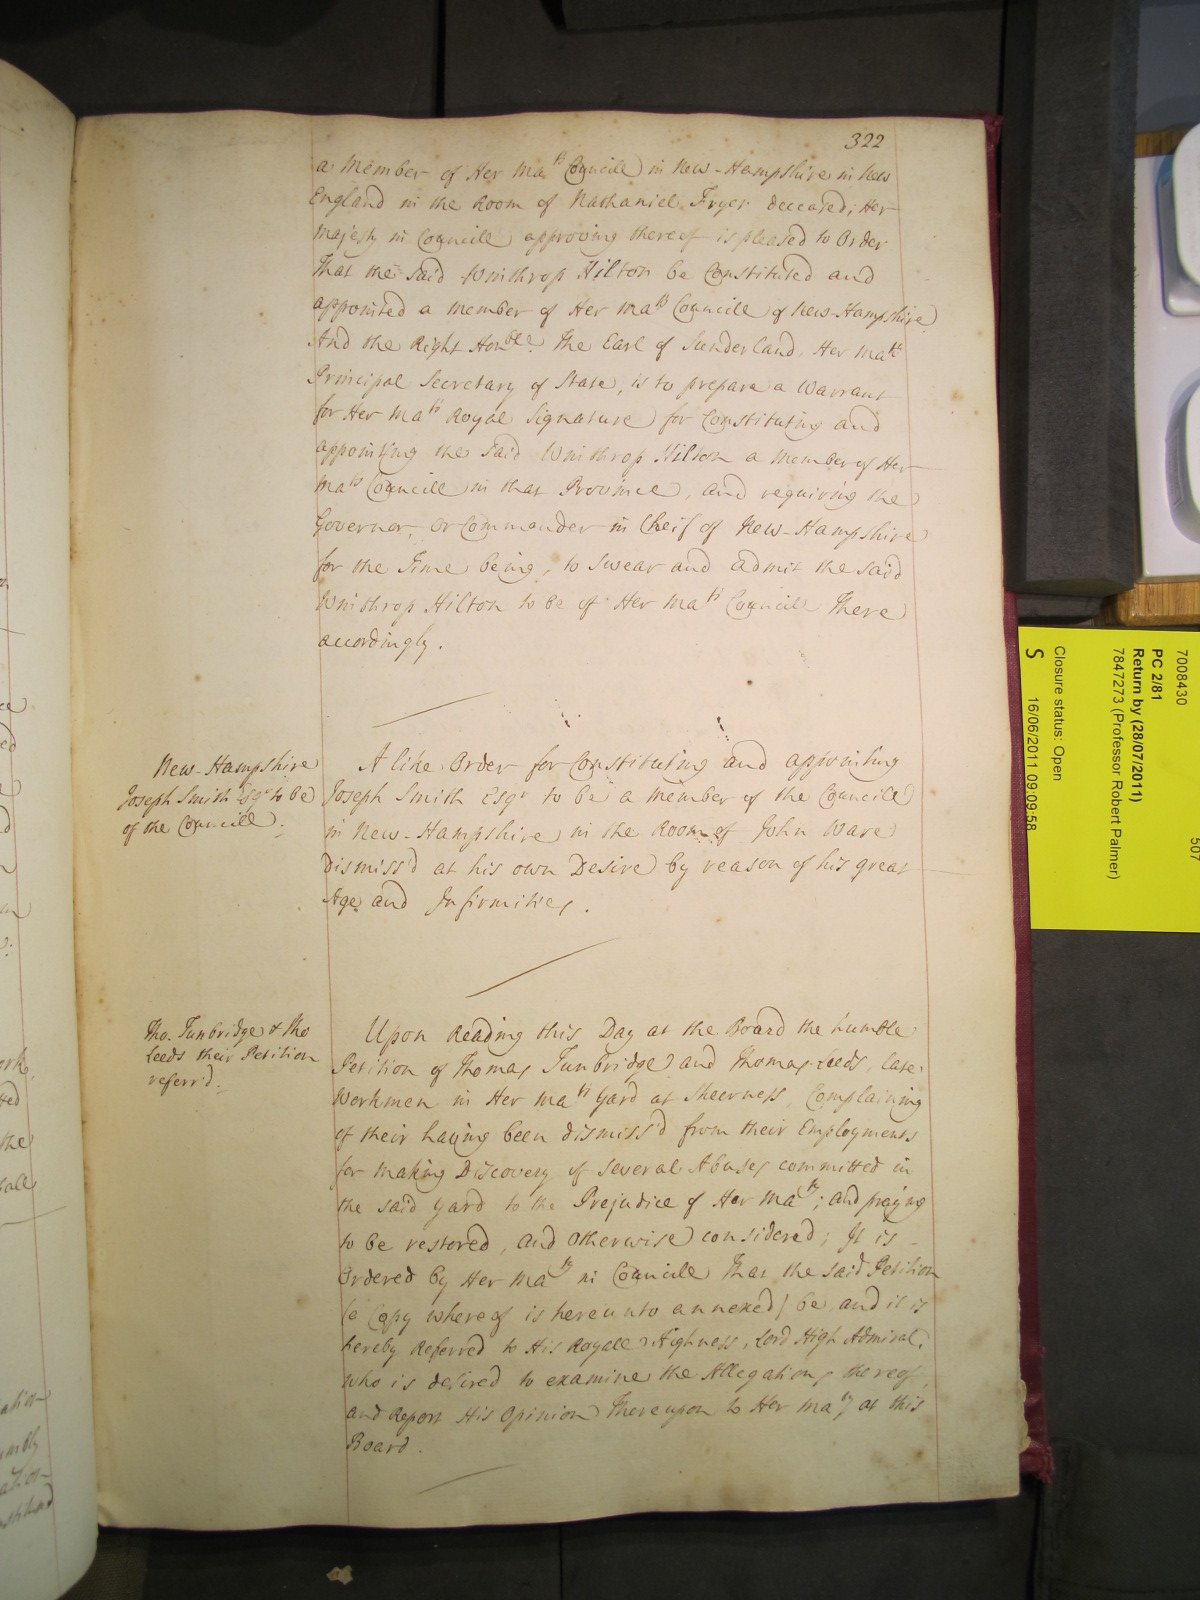 322
a Member of Her Ma.ts Councill in New-Hampshire in New
England in the Room of Nathaniel Fryer deceased; Her
Majesty in Councill approving thereof is pleased to Order
That the said Winthrop Hilton be Constituted and
appointed a Member of Her Ma.ts Councill of New-Hampshire
And the Right Honble. The Earl of Sunderland, Her Mats
Principal Secretary of State, is to prepare a Warrant
for Her Mats Royal Signature for Constituting and
appointing the said Winthrop Hilton a Member of Her
Mats Councill in that Province, and requiring the
Governor, or Commander in Cheif of New-Hampshire
for the Time being, to swear and admit the said
Winthrop Hilton to be of Her Mats Councill There
accordingly.
New-Hampshire
Joseph Smith Esqr to be
of the Councill.
A like Order for Constituting and appointing
Joseph Smith Esqr to be a Member of the Councill
in New-Hampshire in the Room of John Ware
Dismiss'd at his own Desire by reason of his great
Age and Infirmities.
Tho. Tunbridge & Tho
Leeds their Petition
referr'd.
Upon Reading this Day at the Board the humble
Petition of Thomas Tunbridge and Thomas Leeds, late
Workmen in Her Mats Yard at Sheerness, Complaining
of their having been dismiss'd from their Employments
for making Discovery of several Abuses committed in
the said Yard to the Prejudice of Her Maty; and praying
to be restored, and otherwise considered; It is
Ordered by Her Maty in Councill That the said Petition
(a Copy whereof is hereunto annexed) be, and it is
hereby Referred to His Royall Highness, Lord High Admiral,
who is desired to examine the Allegations thereof,
and Report His Opinion Thereupon to Her Maty at this
Board.
7008430
PC 2/81
Return by (28/07/2011)
7847273 (Professor Robert Palmer)
Closure status: Open
S 16/06/2011 09:09:58
507